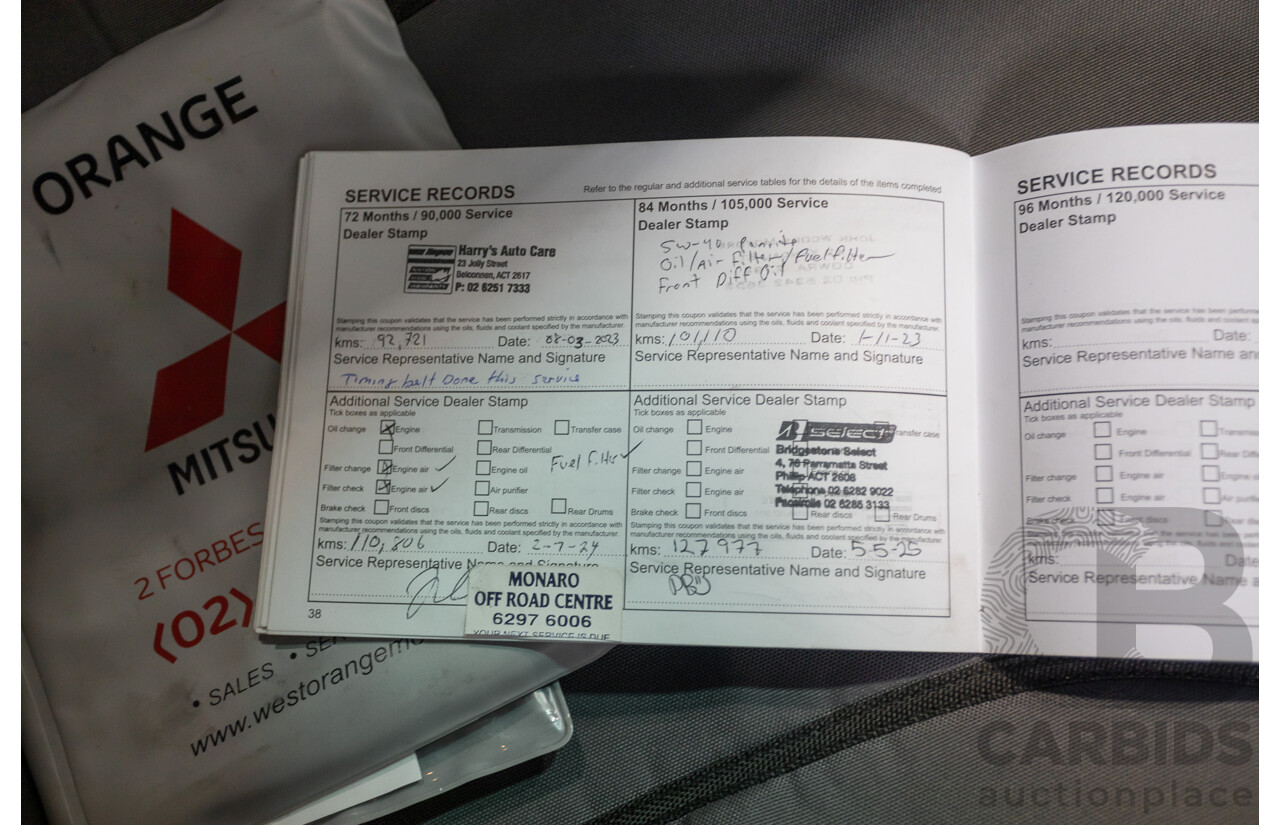 ORANGE
MITSU
2 FORBES
(02)
• SALES • SE
www.westorangem
SERVICE RECORDS
Refer to the regular and additional service tables for the details of the items completed
72 Months / 90,000 Service
Dealer Stamp
Harry's Auto Care
23 Jolly Street
Belconnen, ACT 2617
P: 02 6251 7333
Stamping this coupon validates that the service has been performed strictly in accordance with
manufacturer recommendations using the oils, fluids and coolant specified by the manufacturer.
kms: 92,721 Date: 08-03-2023
Service Representative Name and Signature
Timing belt Done this service
Additional Service Dealer Stamp
Tick boxes as applicable
Oil change Engine Transmission Transfer case
Front Differential Rear Differential
Fuel filter
Filter change Engine air Engine oil
Filter check Engine air Air purifier
Brake check Front discs Rear discs Rear Drums
Stamping this coupon validates that the service has been performed strictly in accordance with
manufacturer recommendations using the oils, fluids and coolant specified by the manufacturer.
kms: 110,806 Date: 2-7-24
Service Representative Name and Signature
MONARO
OFF ROAD CENTRE
6297 6006
YOUR NEXT SERVICE IS DUE
38
84 Months / 105,000 Service
Dealer Stamp
5W-40
Oil/Air Filter/Fuel filter
Front Diff Oil
Stamping this coupon validates that the service has been performed strictly in accordance with
manufacturer recommendations using the oils, fluids and coolant specified by the manufacturer.
kms: 101,110 Date: 1-11-23
Service Representative Name and Signature
Additional Service Dealer Stamp
Tick boxes as applicable
Oil change Engine Transfer case
Front Differential
Filter change Engine air
Filter check Engine air
Brake check Front discs Rear discs Rear Drums
B SELECT
Bridgestone Select
4, 76 Parramatta Street
Phillip ACT 2606
Telephone 02 6282 9022
Facsimile 02 6285 3133
Stamping this coupon validates that the service has been performed strictly in accordance with
manufacturer recommendations using the oils, fluids and coolant specified by the manufacturer.
kms: 127977 Date: 5-5-25
Service Representative Name and Signature
SERVICE RECORDS
96 Months / 120,000 Service
Dealer Stamp
Stamping this coupon validates that the service has been perform
manufacturer recommendations using the oils, fluids and coolant sp
kms: Date:
Service Representative Name an
Additional Service Dealer Stamp
Tick boxes as applicable
Oil change Engine Transmis
Front Differential Rear Diff
Filter change Engine air Engine o
Filter check Engine air Air purifi
Brake check Front discs Rear d
kms: Date
Service Representative Name a
B
CARBIDS
auctionplace